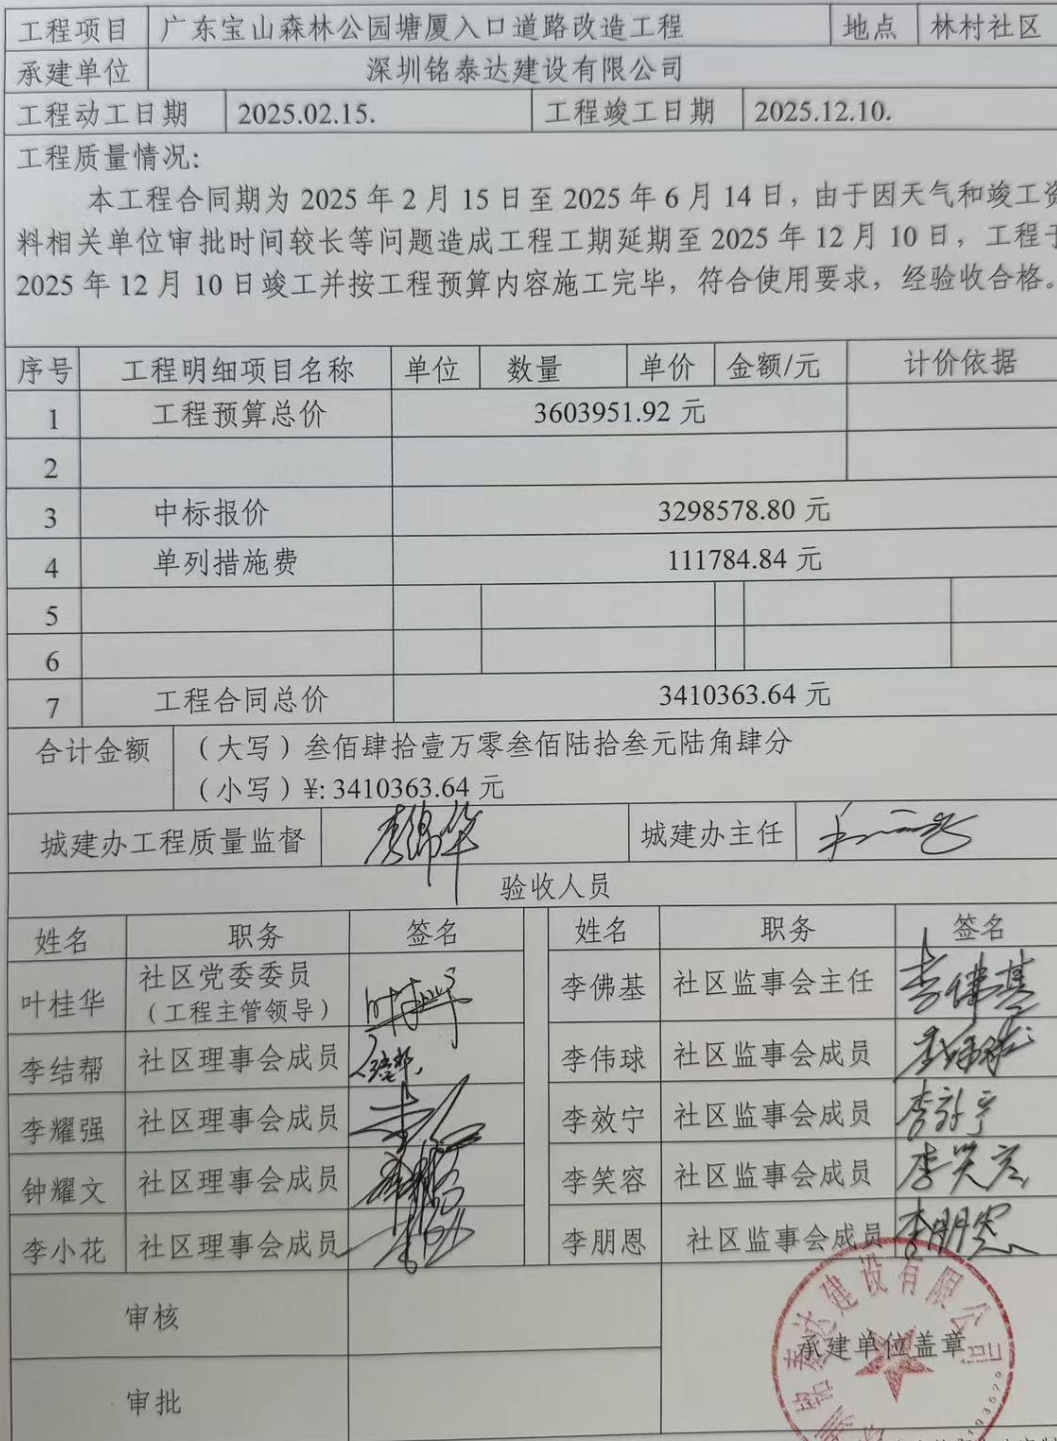 工程项目 广东宝山森林公园塘厦入口道路改造工程 地点 林村社区
承建单位 深圳铭泰达建设有限公司
工程动工日期 2025.02.15. 工程竣工日期 2025.12.10.
工程质量情况:
本工程合同期为 2025 年 2 月 15 日至 2025 年 6 月 14 日，由于因天气和竣工资
料相关单位审批时间较长等问题造成工程工期延期至 2025 年 12 月 10 日，工程于
2025 年 12 月 10 日竣工并按工程预算内容施工完毕，符合使用要求，经验收合格。
序号 工程明细项目名称 单位 数量 单价 金额/元 计价依据
1 工程预算总价 3603951.92 元
2
3 中标报价 3298578.80 元
4 单列措施费 111784.84 元
5
6
7 工程合同总价 3410363.64 元
合计金额 （大写）叁佰肆拾壹万零叁佰陆拾叁元陆角肆分
（小写）¥: 3410363.64 元
城建办工程质量监督 城建办主任
验收人员
姓名 职务 签名 姓名 职务 签名
叶桂华 社区党委委员 李佛基 社区监事会主任 李佛基
（工程主管领导）
李结帮 社区理事会成员 李伟球 社区监事会成员
李耀强 社区理事会成员 李效宁 社区监事会成员 李效宁
钟耀文 社区理事会成员 李笑容 社区监事会成员 李笑容
李小花 社区理事会成员 李朋恩 社区监事会成员 李朋恩
审核
承建单位盖章
审批